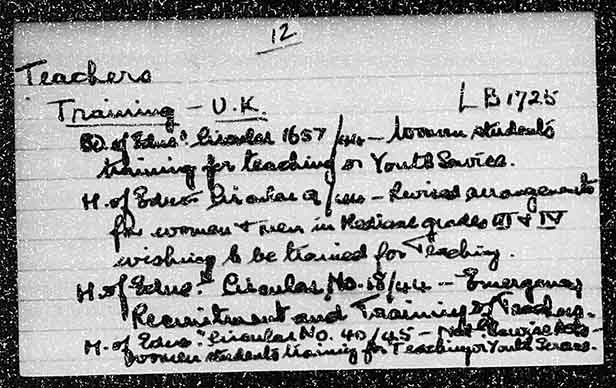 12
Teachers
Training - U.K. LB1725
Bd. of Educⁿ. Circular 1657/44 - Women students
training for teaching or Youth Service.
M. of Educⁿ Circular 9/44 - Revised arrangements
for women & men in Medical grades III & IV
wishing to be trained for Teaching.
M. of Educⁿ. Circular No. 18/44 - Emergency
Recruitment and Training of Teachers.
M. of Educⁿ Circular No. 40/45 - Natˡ Service Acts -
women students training for Teaching or Youth Service.